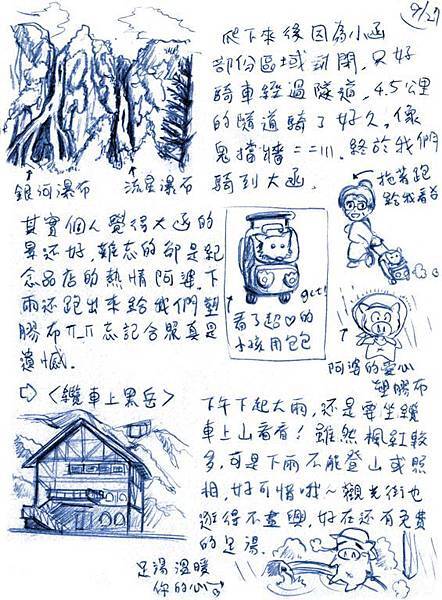 9/21
爬下來後因為小函
部份區域封閉,只好
騎車經過隧道,4.5公里
的隧道騎了好久,像
鬼擋牆=三川.終於我們
騎到大函.
銀河瀑布
流星瀑布
拖著跑
給我看
其實個人覺得大函的
景还好,難忘的卻是紀
念品店的熱情阿婆.下
雨还跑出來給我們塑
膠布π_π忘記合照真是
遺憾.
get!
看了超♡的
小孩用包包
阿婆的愛心
塑膠布
⇨〈纜車上黑岳〉
下午下起大雨,还是要坐纜
車上山看看!雖然楓紅較
多,可是下雨不能登山或照
相,好可惜哦~觀光街也
逛得不盡興,好在还有免費
的足湯.
足湯溫暖
你的心